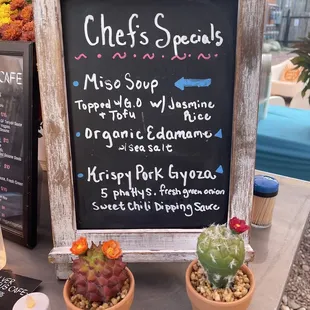 Chef's Specials
Miso Soup
Topped w/G.O w/ Jasmine
+ Tofu Rice
Organic Edamame
w/sea salt
Krispy Pork Gyoza
5 phattys. fresh green onion
Sweet Chili Dipping Sauce
CAFE